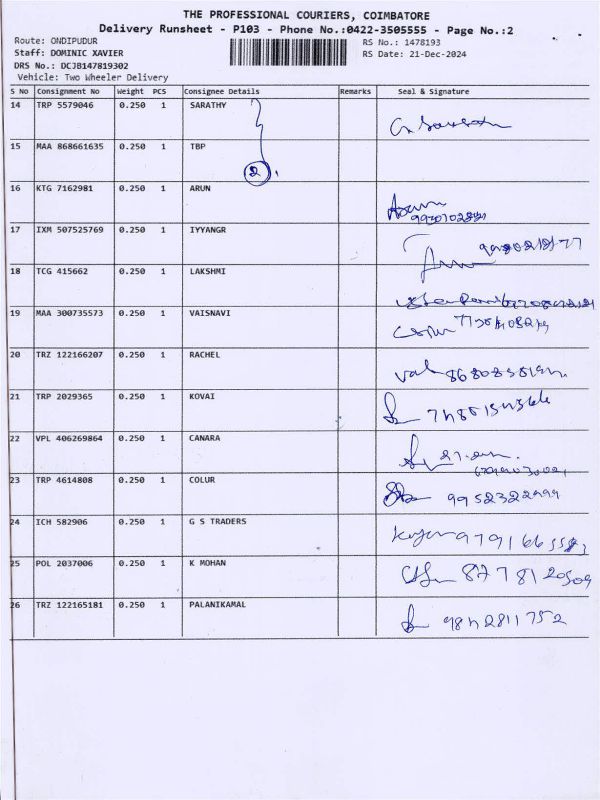 THE PROFESSIONAL COURIERS, COIMBATORE
Delivery Runsheet - P103 - Phone No.:0422-3505555 - Page No.:2
Route: ONDIPUDUR
RS No.: 1478193
Staff: DOMINIC XAVIER
RS Date: 21-Dec-2024
DRS No.: DCJB147819302
Vehicle: Two Wheeler Delivery
S No Consignment No Weight PCS Consignee Details Remarks Seal & Signature
14 TRP 5579046 0.250 1 SARATHY
15 MAA 868661635 0.250 1 TBP
2
16 KTG 7162981 0.250 1 ARUN
17 IXM 507525769 0.250 1 IYYANGR
18 TCG 415662 0.250 1 LAKSHMI
19 MAA 300735573 0.250 1 VAISNAVI
20 TRZ 122166207 0.250 1 RACHEL
21 TRP 2029365 0.250 1 KOVAI
22 VPL 406269864 0.250 1 CANARA
23 TRP 4614808 0.250 1 COLUR
9952322999
24 ICH 582906 0.250 1 G S TRADERS
25 POL 2037006 0.250 1 K MOHAN
8778120509
26 TRZ 122165181 0.250 1 PALANIKAMAL
9842811752